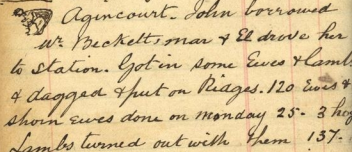 Agincourt. John borrowed
Mr. Beckett, mar & El drove her
to Station. Got in some Ewes & Lambs
& dagged & put on Ridges. 120 Ewes &
shorn Ewes done on Monday 25 - 3 hog
Lambs turned out with them 137.